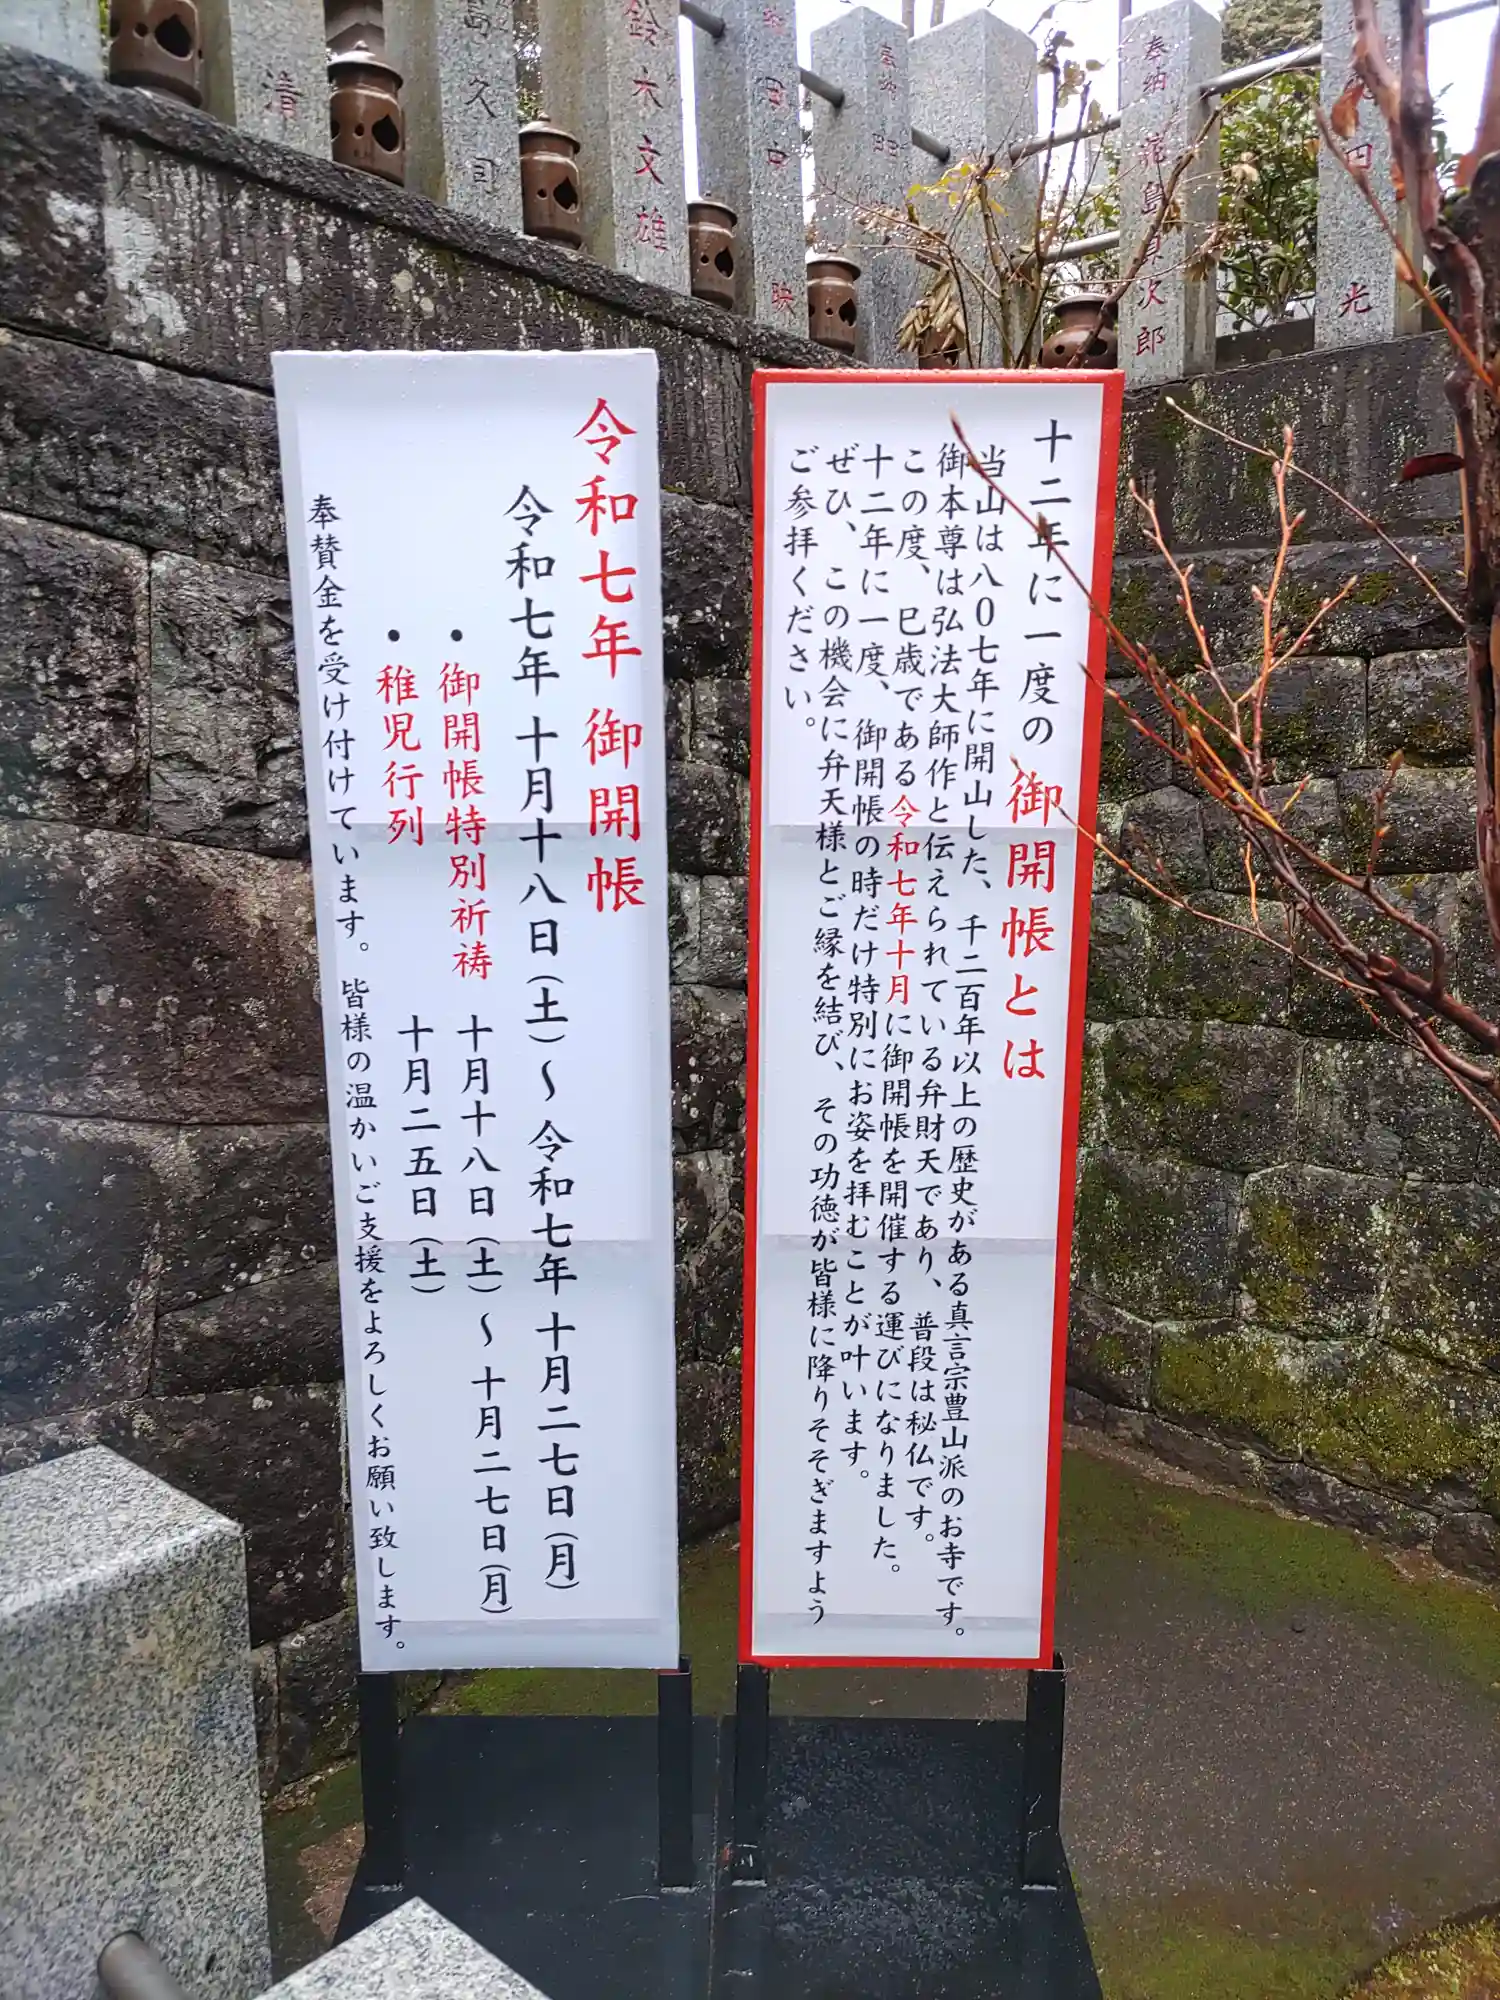 十二年に一度の 御開帳とは
当山は八〇七年に開山した、千二百年以上の歴史がある真言宗豊山派のお寺です。
御本尊は弘法大師作と伝えられている弁財天であり、普段は秘仏です。
この度、巳歳である令和七年十月に御開帳を開催する運びになりました。
十二年に一度、御開帳の時だけ特別にお姿を拝むことが叶います。
ぜひ、この機会に弁天様とご縁を結び、その功徳が皆様に降りそそぎますよう
ご参拝ください。
令和七年 御開帳
令和七年 十月十八日(土)〜令和七年 十月二七日(月)
・御開帳特別祈祷 十月十八日(土)〜十月二七日(月)
・稚児行列 十月二五日(土)
奉賛金を受け付けています。皆様の温かいご支援をよろしくお願い致します。
光
奉納 花島
次郎
奉納
映
鈴木文雄
島久司
清